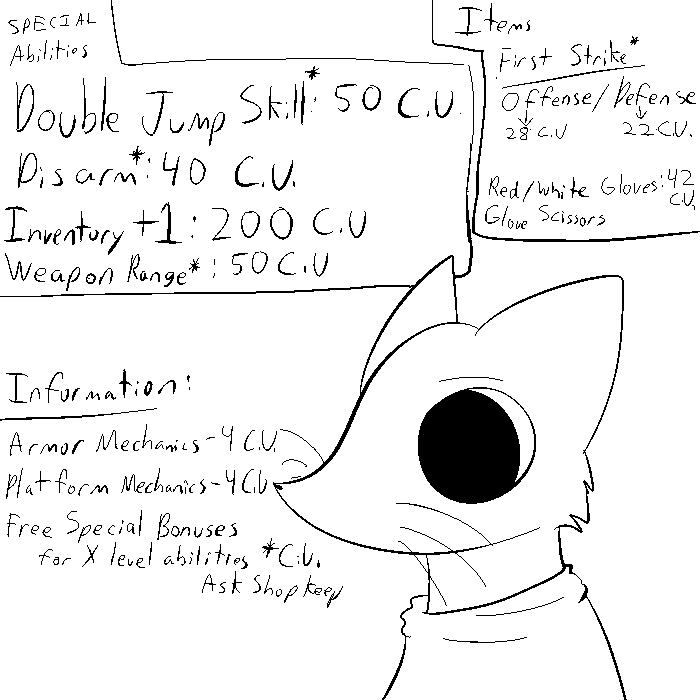 SPECIAL
Abilities
Double Jump Skill*: 50 C.U.
Disarm*: 40 C.U.
Inventory +1: 200 C.U
Weapon Range*: 50 C.U
Items
First Strike*
Offense/Defense
28 C.U 22 C.U.
Red/White Gloves: 42
C.U.
Glove Scissors
Information:
Armor Mechanics - 4 C.U.
Platform Mechanics - 4 C.U
Free Special Bonuses
for X level abilities *C.U.
Ask Shop keep